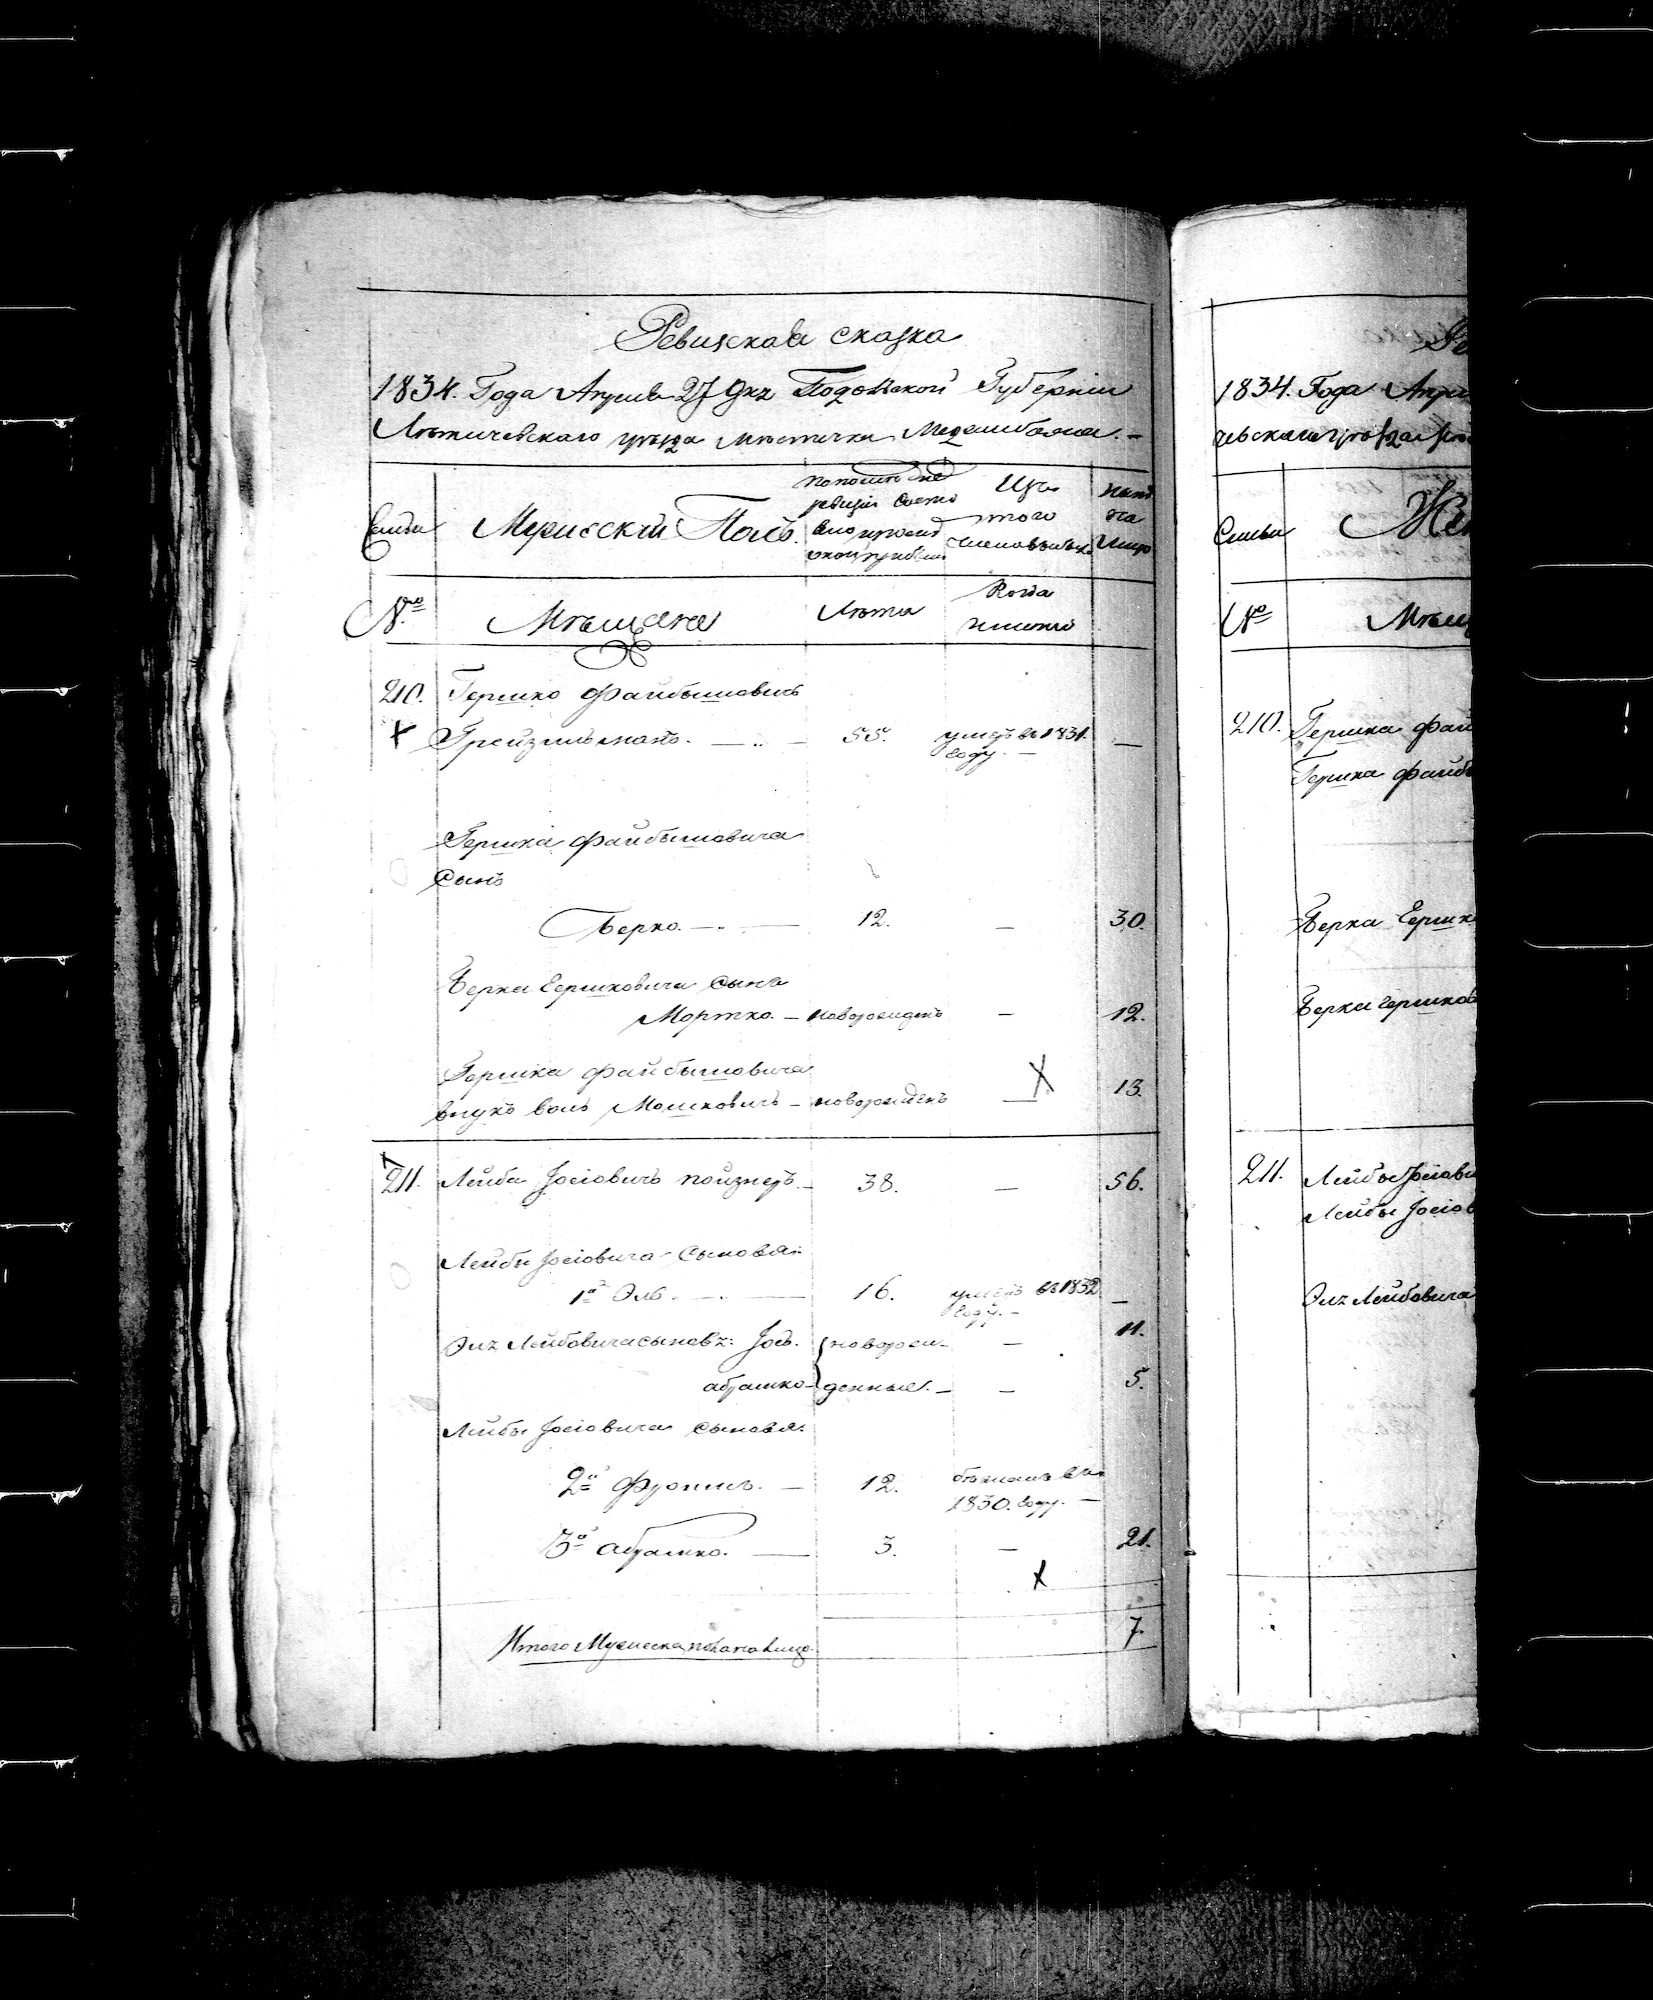 Ревизская сказка
1834. Года Апреля 27 дня Подольской Губерніи
Лѣтичевскаго уѣзда Мѣстечка Меджибожа. –
Семьи
Мужескій Полъ.
по послѣдней
ревизіи состо
яло и послѣ
оной прибыло
Изъ
того
числа выбыло
Нынѣ
на
лицо
№
Мѣщане
Лѣта
Когда
именно
210. Гершко Файбышовичъ
55. умеръ въ 1831. –
году. –
Гершка Файбышовича
сынъ
Берко. – 12. – 30.
Берка Гершковича сынъ
Мортко. – новорожденъ – 12.
Гершка Файбышовича
внукъ Мошковичъ – новорожденъ – 13.
211. Лейба Іосіовичъ Пойзнеръ. – 38. – 56.
Лейбы Іосіовича сыновья:
1й Эль. – 16. умеръ въ 1832 –
году. –
Эля Лейбовича сыновья: Іось. новорож– – 11.
абрашко – денные. – – 5.
Лейбы Іосіовича сыновья:
2й Фроимъ. – 12. бѣжалъ въ
1830. году. –
3й абрашко. – 3. – 21.
Итого Мужеска пола на лицо. 7.
1834. Года
Семьи
№
210. Гершка
Гершка
Берка
Берка
211. Лейбы
Лейбы
Эля Лейбовича